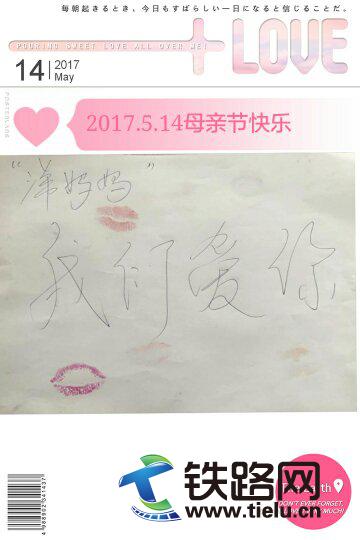 毎朝起きるとき、今日もすばらしい一日になると信じることだ。
POURING SWEET LOVE ALL OVER ME!
+ LOVE
14 2017
May
POSTERLABS
2017.5.14母亲节快乐
“洋妈妈”
我们爱你
th
DON'T EVER FORGET,
MUCH!
铁路网
www.tielu.cn
4988902041437